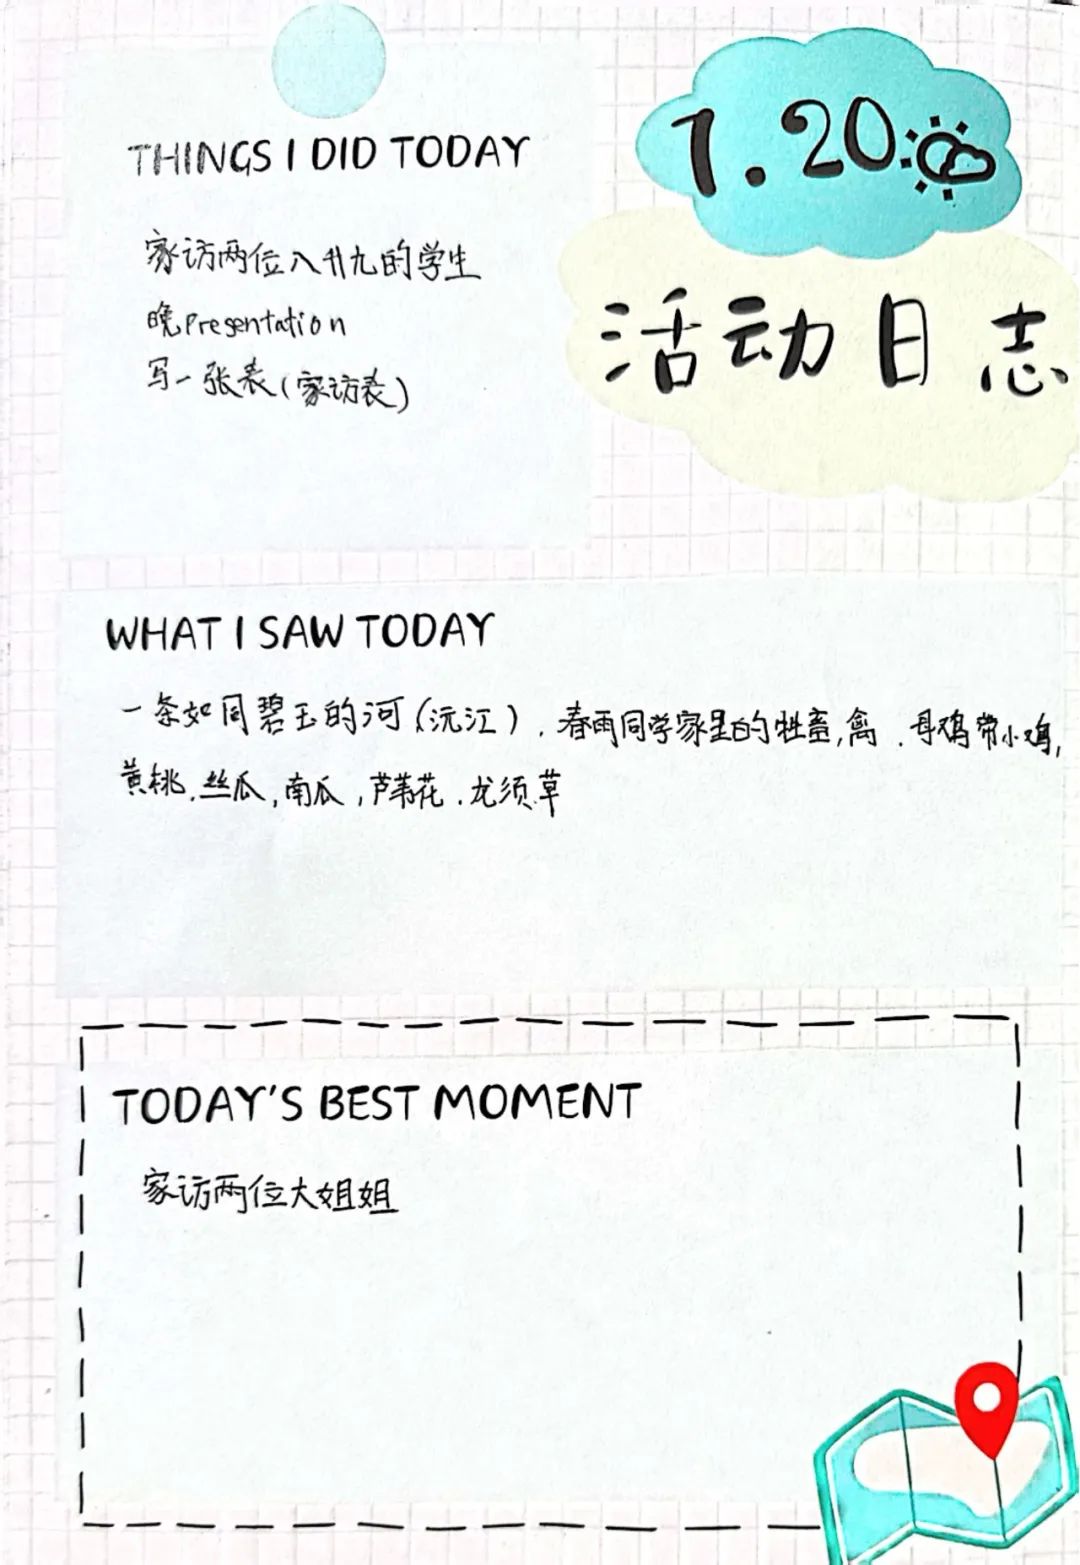 1.20
活动日志
THINGS I DID TODAY
家访两位八升九的学生
晚presentation
写一张表(家访表)
WHAT I SAW TODAY
一条如同碧玉的河(沅江).春雨同学家里的牲畜,禽.母鸡带小鸡,
黄桃.丝瓜,南瓜,芦苇花.龙须草
TODAY'S BEST MOMENT
家访两位大姐姐